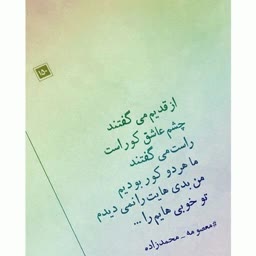 از قدیم می گفتند
چشم عاشق کور است
راست می گفتند
ما هر دو کور بودیم
من بدی هایت را نمی دیدم
تو خوبی هایم را ...
#معصومه_محمدزاده